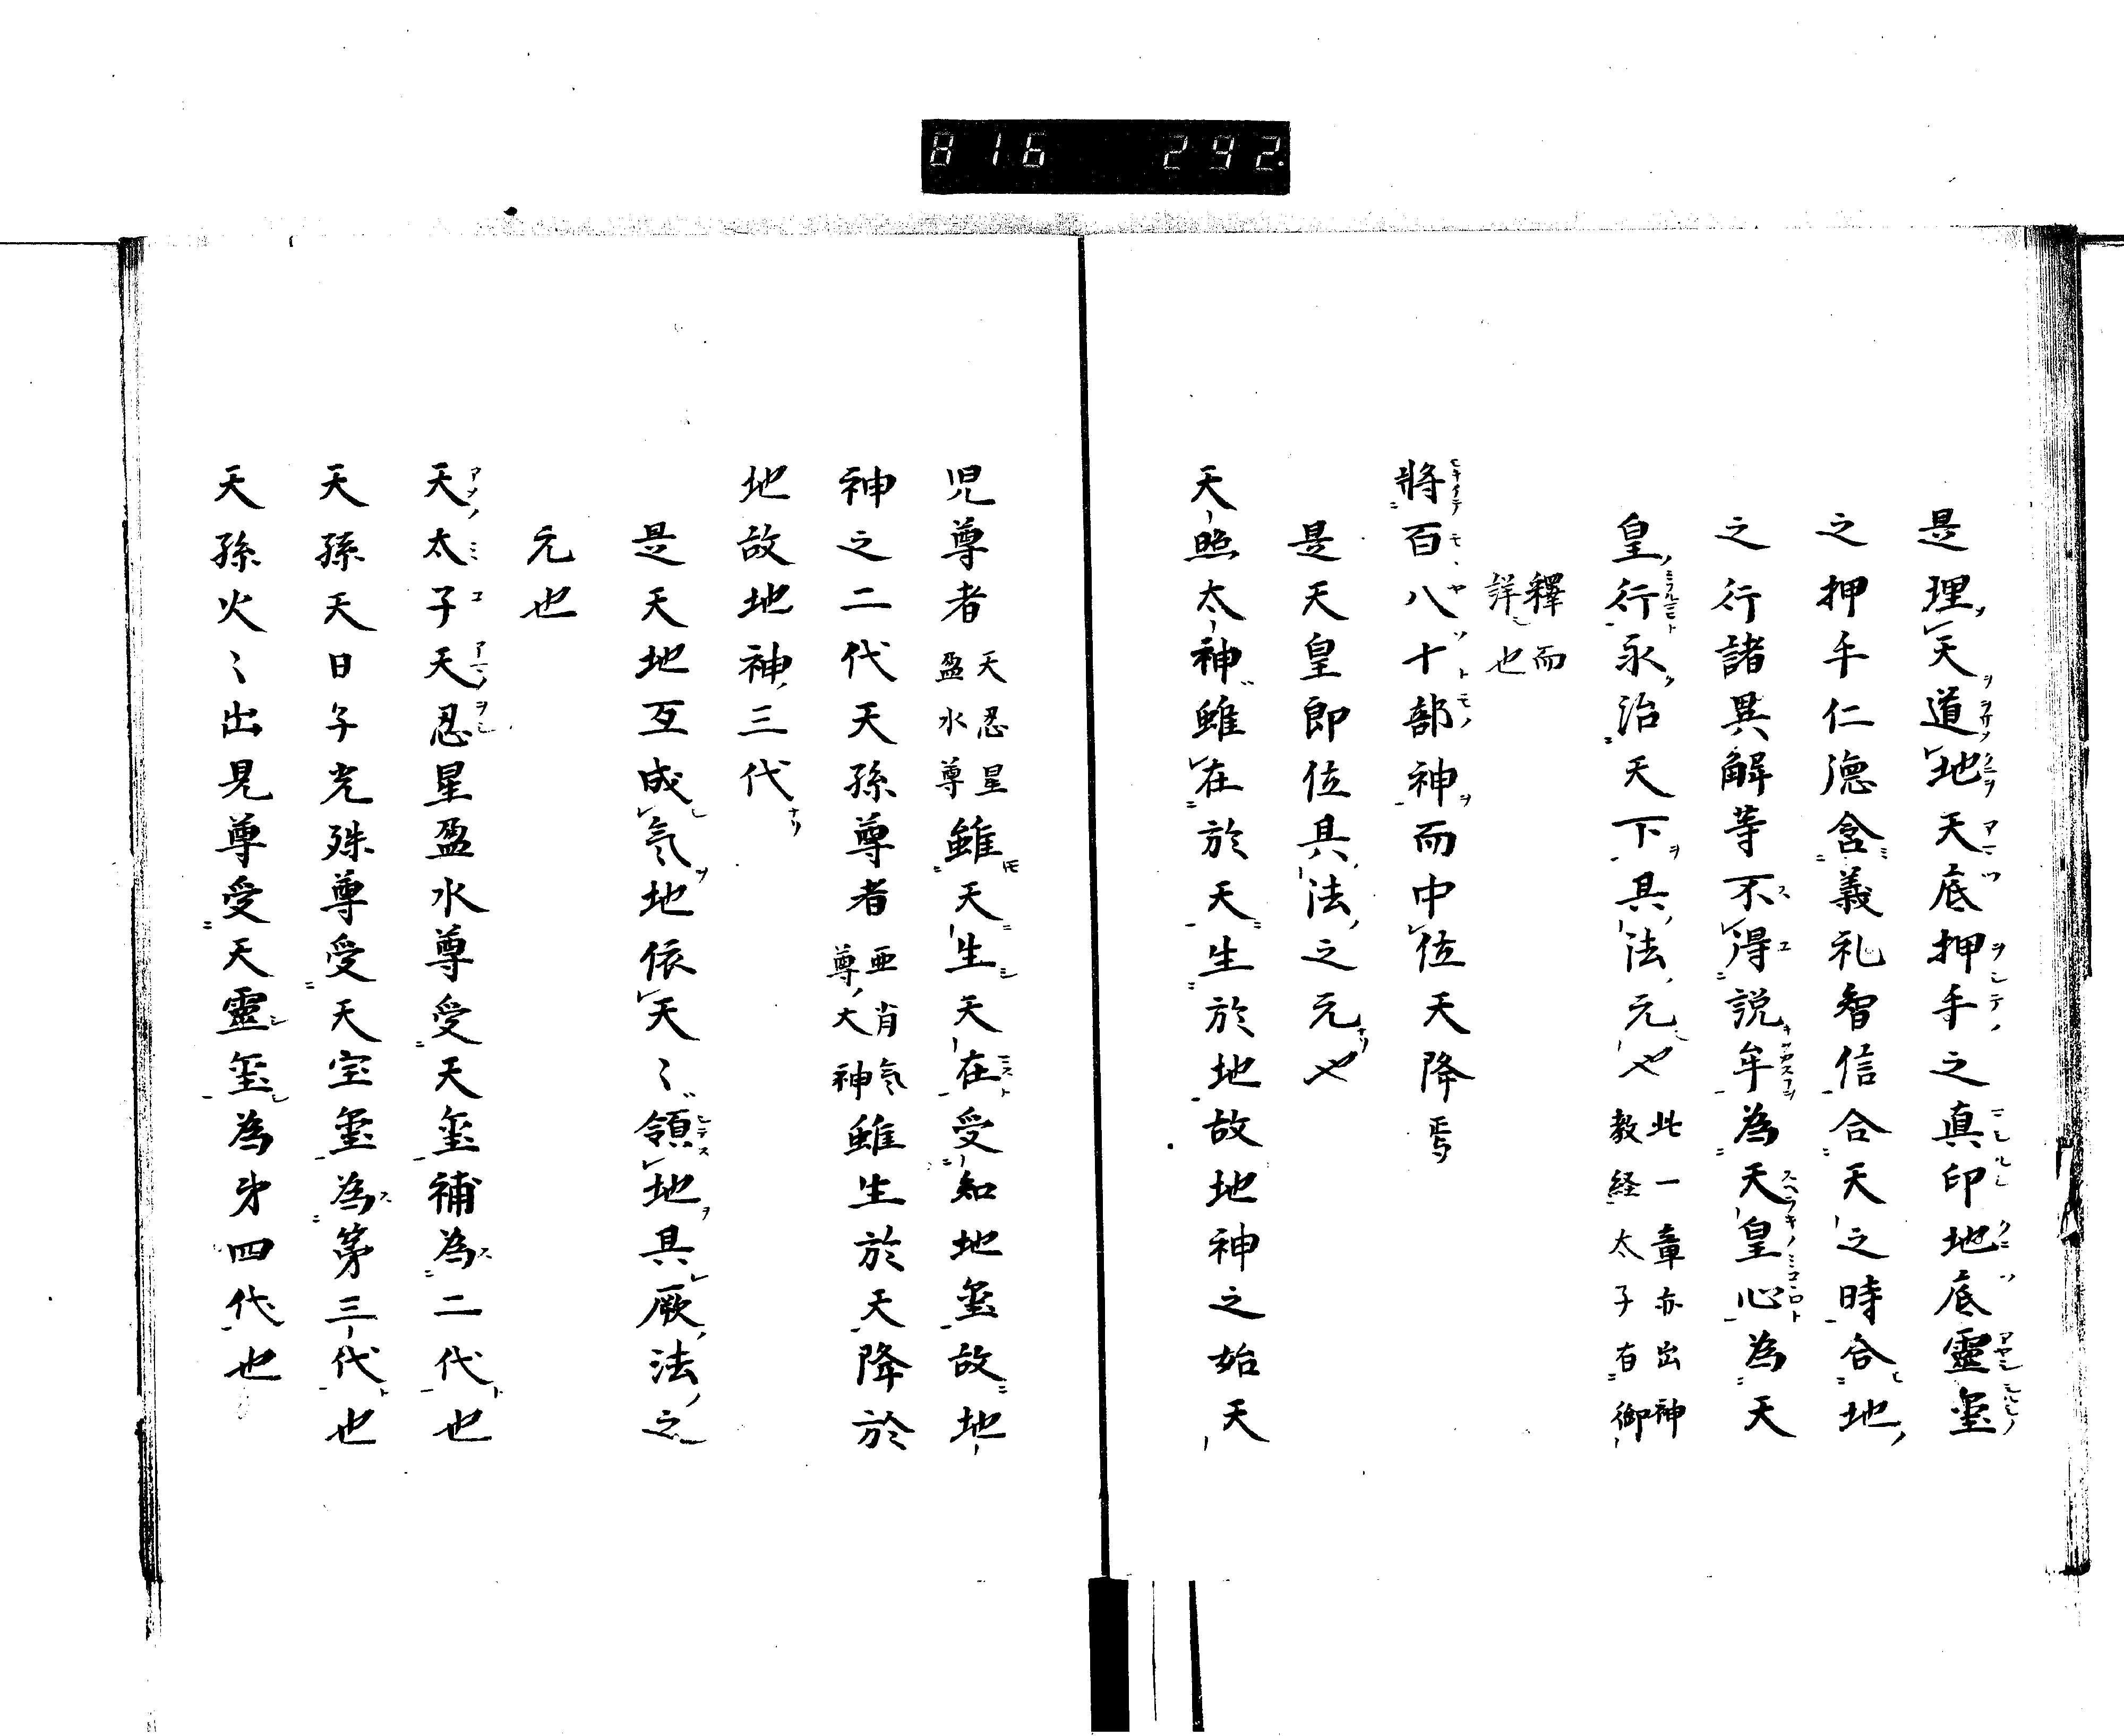 816 292
是理天道地天底押手之真印地底靈璽
之押手仁德含義礼智信合天之時合地
之行諸異解等不得説牟為天皇心為天
皇行永治天下具法元也 此一章亦出神教経太子有御
釋而詳也
將百八十部神而中位天降焉
是天皇即位具法之元也
天照太神雖在於天生於地故地神之始天
児尊者 天忍星盈水尊 雖天生天在受知地璽故地
神之二代天孫尊者 亜肖気尊大神 雖生於天降於
地故地神三代
是天地互成気地依天〻領地具厥法之
元也
天太子天忍星盈水尊受天璽補為二代也
天孫天日子光殊尊受天宝璽為第三代也
天孫火〻出見尊受天靈璽為弟四代也